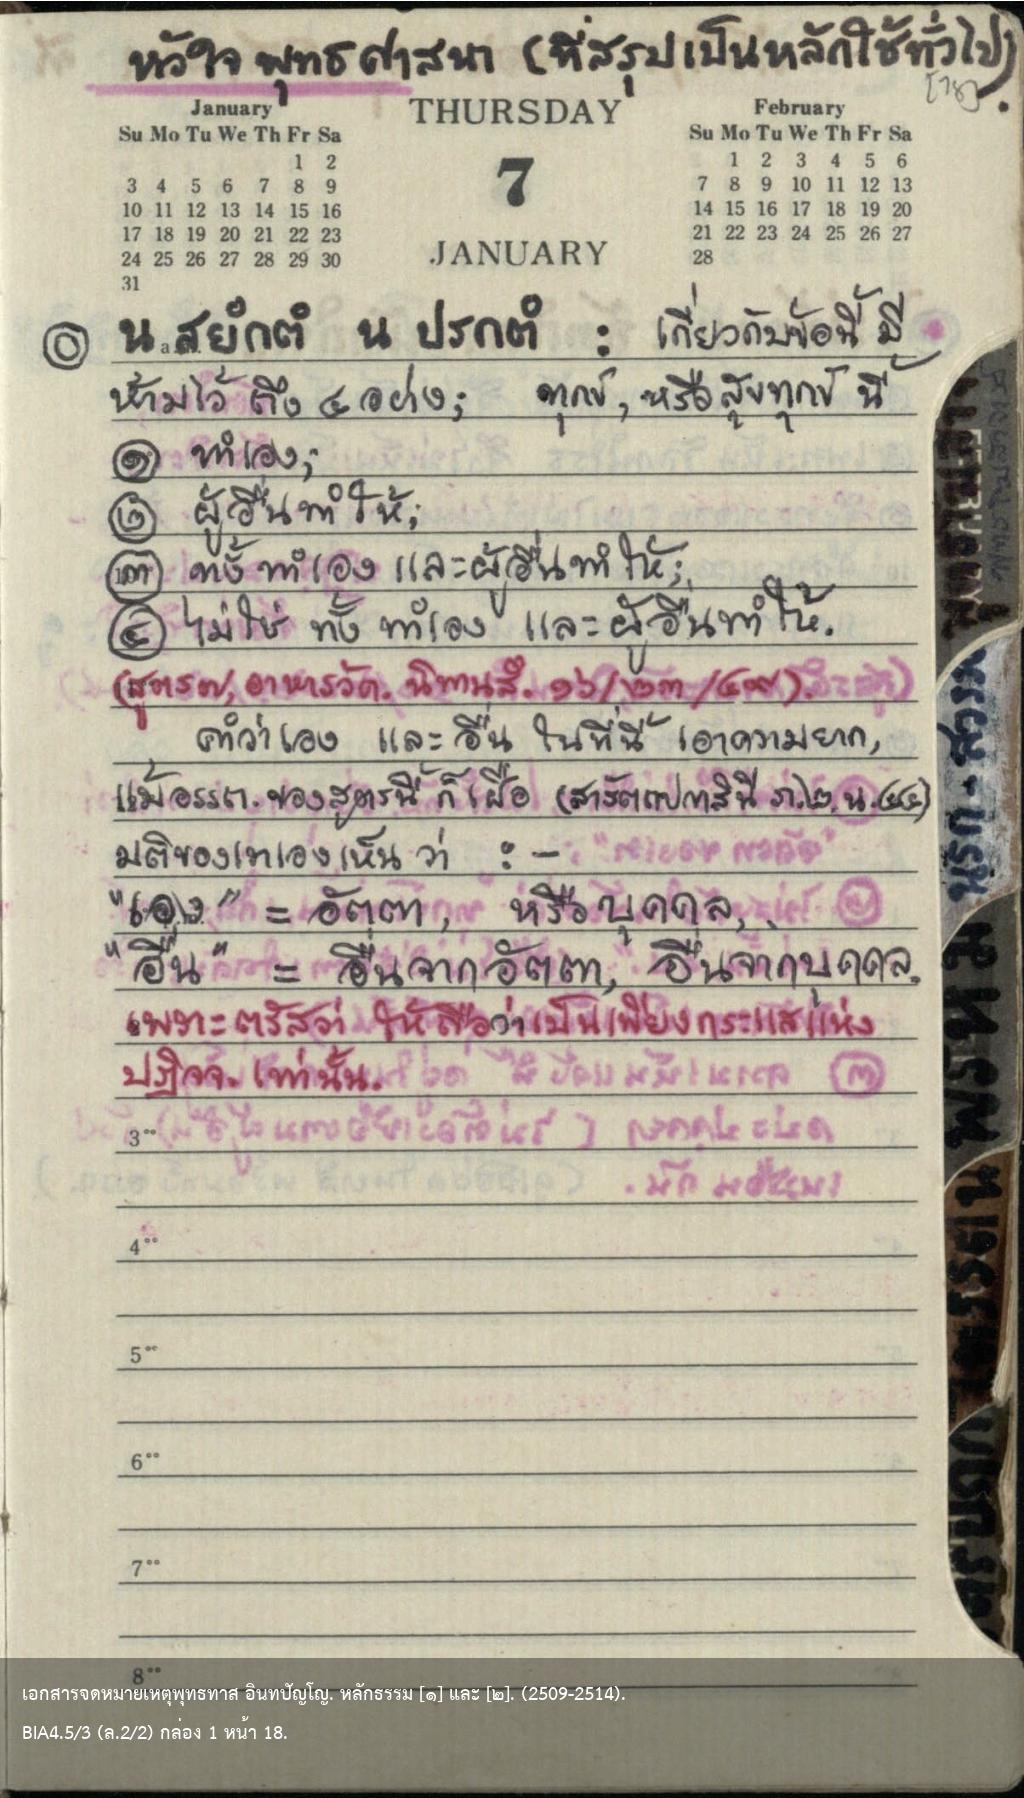 หัวใจพุทธศาสนา (ที่สรุปเป็นหลักใช้ทั่วไป).
[18]
January
Su Mo Tu We Th Fr Sa
1 2
3 4 5 6 7 8 9
10 11 12 13 14 15 16
17 18 19 20 21 22 23
24 25 26 27 28 29 30
31
THURSDAY
7
JANUARY
February
Su Mo Tu We Th Fr Sa
1 2 3 4 5 6
7 8 9 10 11 12 13
14 15 16 17 18 19 20
21 22 23 24 25 26 27
28
๐ น สยํกตํ น ปรกตํ : เกี่ยวกับข้อนี้ มี
ห้ามไว้ ถึง ๔ อย่าง; ทุกข์, หรือสุขทุกข์ นี้
๑ ทำเอง;
๒ ผู้อื่นทำให้;
๓ ทั้งทำเอง และผู้อื่นทำให้;
๔ ไม่ใช่ ทั้งทำเอง และผู้อื่นทำให้.
(สูตร๗, อาหารวัค. นิทานสํ. ๑๖/๒๓/
คำว่าเอง และ อื่น ในที่นี้ เอาความยาก,
แม้อรรถ.ของสูตรนี้ ก็เผือ (สารัตถปกาสินี ภ.๒.น.
มติของเราเองเห็นว่า :-
"เอง" = อัตตา, หรือบุคคล,
"อื่น" = อื่นจากอัตตา, อื่นจากบุคคล.
เพราะตรัสว่า ให้ถือว่าเป็นเพียงกระแสแห่ง
ปฏิจจ. เท่านั้น.
3°°
4°°
5°°
6°°
7°°
8°°
เอกสารจดหมายเหตุพุทธทาส อินทปัญโญ. หลักธรรม [๑] และ [๒]. (2509-2514).
BIA4.5/3 (ล.2/2) กล่อง 1 หน้า 18.